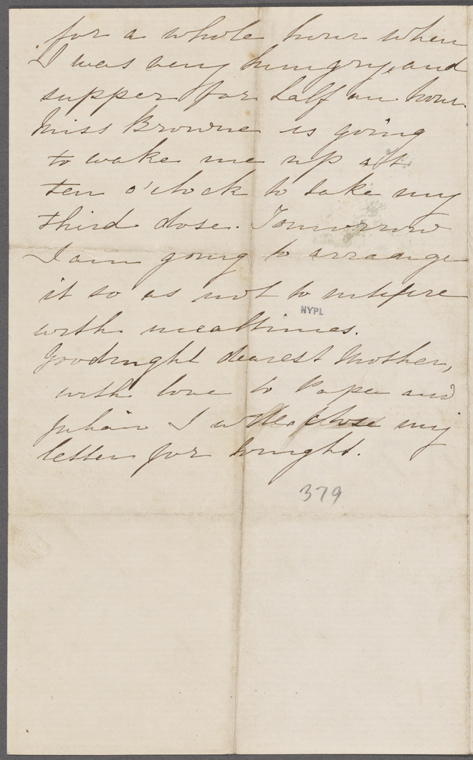 for a whole hour when
I was very hungry, and
supper for half an hour.
Miss Browne is going
to wake me up at
ten o'clock to take my
third dose. Tomorrow
I am going to arrange
it so as not to intefere
NYPL
with mealtimes.
Goodnight dearest Mother,
with love to Papa and
Julian I will close my
letter for tonight.
379